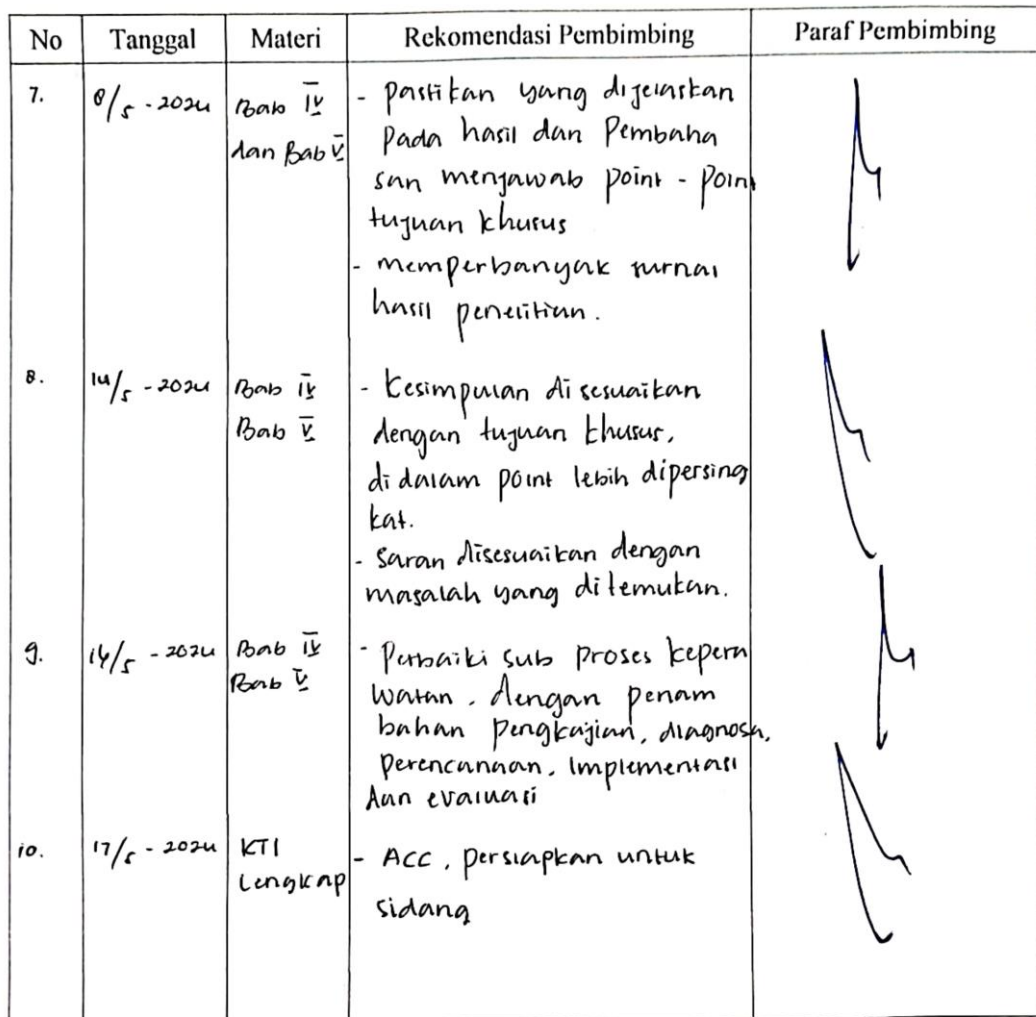 No Tanggal Materi Rekomendasi Pembimbing Paraf Pembimbing
7. 8/5 - 2024 Bab IV - pastikan yang dijelaskan
dan Bab V pada hasil dan Pembaha
san menjawab point - point
tujuan khusus
- memperbanyak jurnal
hasil penelitian.
8. 14/5 - 2024 Bab IV - Kesimpulan disesuaikan
Bab V dengan tujuan khusus,
didalam point lebih dipersing
kat.
- saran disesuaikan dengan
masalah yang ditemukan.
9. /5 - 2024 Bab IV - Perbaiki sub proses kepera
Bab V watan, dengan penam
bahan pengkajian, diagnosa,
perencanaan, implementasi
dan evaluasi
10. 17/5 - 2024 KTI - ACC, persiapkan untuk
Lengkap sidang